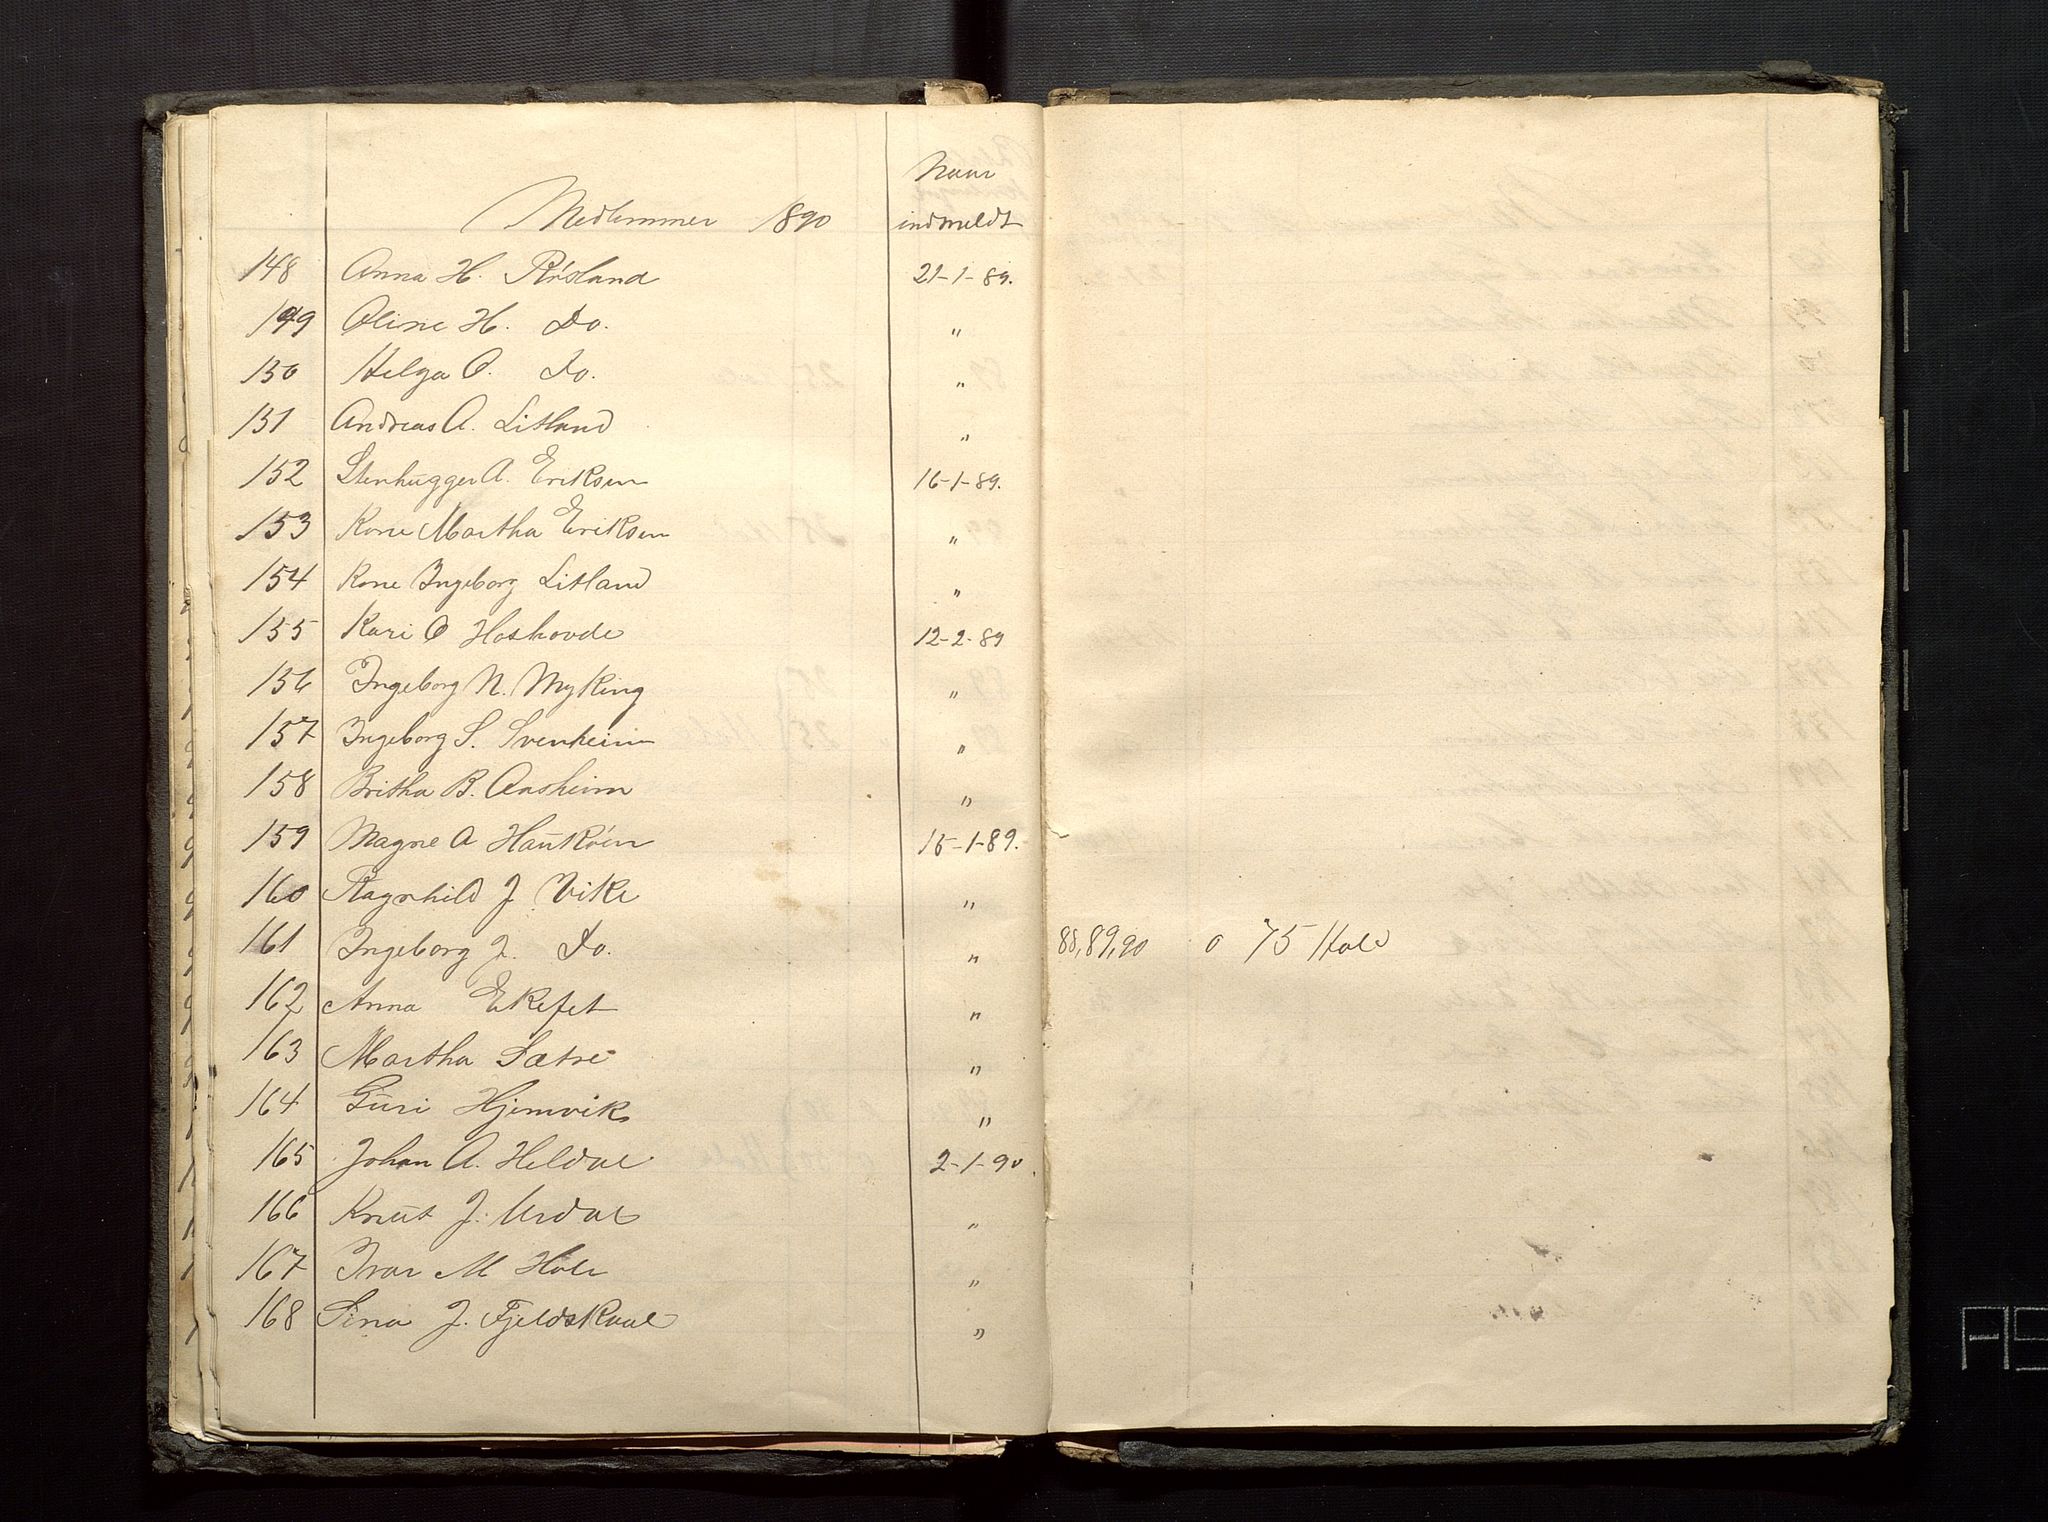 Naar
Medlemmer 1890 indmeldt
148 Anna H. Risland 21-1-89.
149 Oline H. Do. "
150 Helga O. Do. "
151 Andreas A. Litland "
152 Stenhugger A. Eriksen 16-1-89.
153 Kone Martha Eriksen "
154 Kone Ingeborg Litland "
155 Kari O Hoshovde 12-2-89
156 Ingeborg N. Myking "
157 Ingeborg S. Svenheim "
158 Britha B. Aasheim "
159 Magne A Haukøen 15-1-89.
160 Ragnhild J Vike "
161 Ingeborg J. Do. " 88,89,90 o 75 Hole
162 Anna Ekefet "
163 Martha Sætre "
164 Guri Hjemvik "
165 Johan A. Heldal 2-1-90.
166 Knut J. Urdal "
167 Ivar M Hole "
168 Sina J. Fjeldskaal "